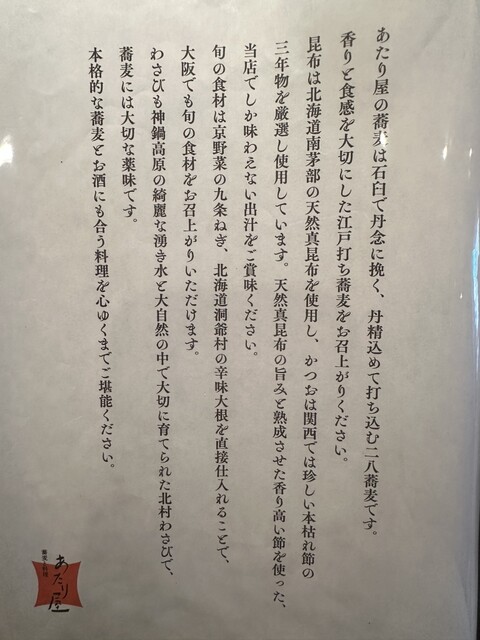 あたり屋の蕎麦は石臼で丹念に挽く、丹精込めて打ち込む二八蕎麦です。
香りと食感を大切にした江戸打ち蕎麦をお召上がりください。
昆布は北海道南茅部の天然真昆布を使用し、かつおは関西では珍しい本枯れ節の
三年物を厳選し使用しています。天然真昆布の旨みと熟成させた香り高い節を使った、
当店でしか味わえない出汁をご賞味ください。
旬の食材は京野菜の九条ねぎ、北海道洞爺村の辛味大根を直接仕入れることで、
大阪でも旬の食材をお召上がりいただけます。
わさびも神鍋高原の綺麗な湧き水と大自然の中で大切に育てられた北村わさびで、
蕎麦には大切な薬味です。
本格的な蕎麦とお酒にも合う料理を心ゆくまでご堪能ください。
あたり屋